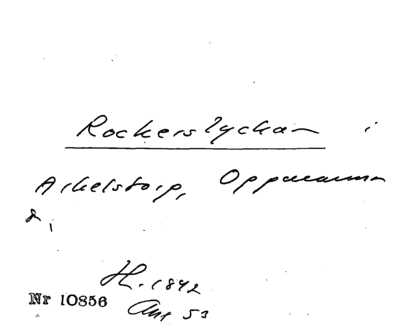 Rockerslyckan i
Arkelstorp, Oppmanna
s.
H. 1842
Nr 10856 Ant 53